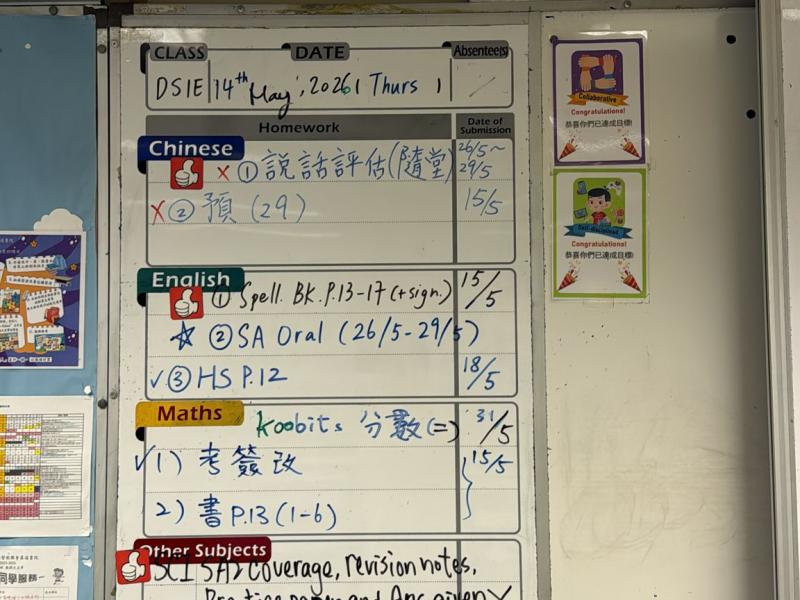 CLASS DATE Absentee(s)
D5IE 14th May, 2026 ( Thurs ) /
Homework Date of Submission
Chinese
✗ ① 說話評估(隨堂) 26/5~29/5
✗ ② 預 (29) 15/5
English
① Spell. BK. P.13-17 (+sign.) 15/5
☆ ② SA Oral (26/5-29/5)
✓ ③ HS P.12 18/5
Maths
koobits 分數(二) 31/5
✓ 1) 考簽改 15/5
2) 書 P.13 (1-6)
Other Subjects
SCI SA2 coverage, revision notes,
Collaborative
Congratulations!
恭喜你們已達成目標!
Self-disciplined
Congratulations!
恭喜你們已達成目標!
同學服務